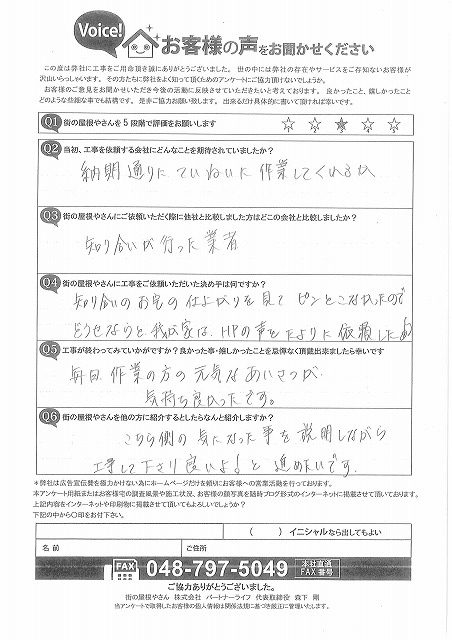 Voice!
お客様の声をお聞かせください
この度は弊社に工事をご用命頂き誠にありがとうございました。 世の中には弊社の存在やサービスをご存知ないお客様が
沢山いらっしゃいます。その方たちに弊社をよく知って頂くためのアンケートにご協力頂けないでしょうか。
お客様のご意見をお聞かせいただき今後の活動に反映させていただきたいと考えております。 良かったこと、嬉しかったこと
どのような些細な事でも結構です。 是非ご協力お願い致します。 出来るだけ具体的に書いて頂ければ幸いです。
Q1 街の屋根やさんを5段階で評価をお願いします ☆ ☆ ★ ☆ ☆
Q2 当初、工事を依頼する会社にどんなことを期待されていましたか?
納期通りにていねいに作業してくれるか
Q3 街の屋根やさんにご依頼いただく際に他社と比較しました方はどこの会社と比較しましたか?
知り合いが行った業者
Q4 街の屋根やさんに工事をご依頼いただいた決め手は何ですか?
知り合いのお宅の仕上がりを見てピンとこなかったので
どうせならと我が家は、HPの声をたよりに依頼した
Q5 工事が終わってみていかがですか?良かった事・嬉しかったことを忌憚なく頂戴出来ましたら幸いです
毎日作業の方の元気なあいさつが
気持ち良かったです。
Q6 街の屋根やさんを他の方に紹介するとしたらなんと紹介しますか?
こちら側の気になった事を説明しながら
工事して下さり良いよ!と進めたいです。
*弊社は広告宣伝費を極力かけない為にホームページだけを頼りにお客様への営業活動を行っております。
本アンケート用紙またはお客様宅の調査風景や施工状況、お客様の顔写真を随時ブログ形式のインターネットに掲載させて頂いております。
上記内容をインターネットや印刷物に掲載させて頂いてもよろしいでしょうか?
下記の中から〇印をお付下さい。
( ) イニシャルなら出してもよい
名前 ご住所
FAX 048-797-5049 本社直通 FAX番号
ご協力ありがとうございました。
街の屋根やさん 株式会社 パートナーライフ 代表取締役 森下 剛
当アンケートで取得したお客様の個人情報は関係法規に基づき厳正に管理いたします。